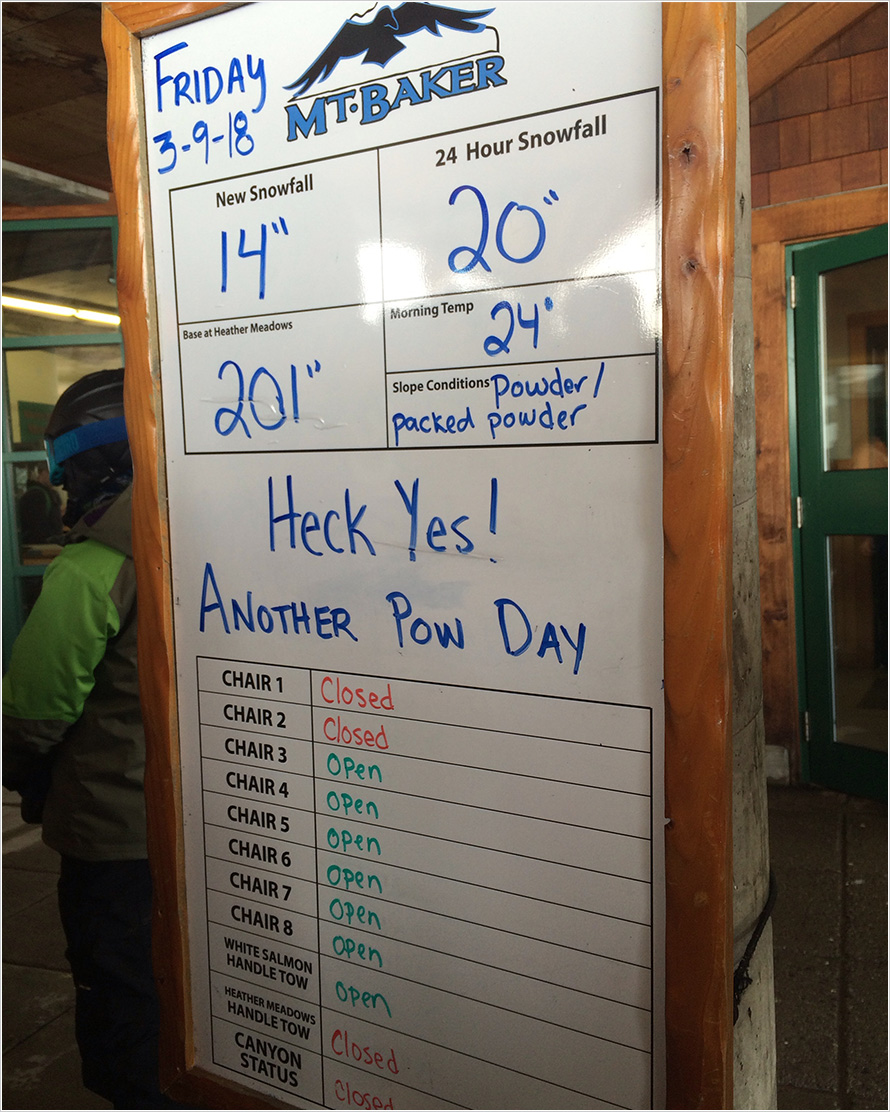 FRIDAY
3-9-18
MT·BAKER
New Snowfall
14"
24 Hour Snowfall
20"
Base at Heather Meadows
201"
Morning Temp
24°
Slope Conditions Powder/
packed powder
Heck Yes!
ANOTHER POW DAY
CHAIR 1 Closed
CHAIR 2 Closed
CHAIR 3 Open
CHAIR 4 Open
CHAIR 5 Open
CHAIR 6 Open
CHAIR 7 Open
CHAIR 8 Open
WHITE SALMON
HANDLE TOW Open
HEATHER MEADOWS
HANDLE TOW Closed
CANYON
STATUS Closed